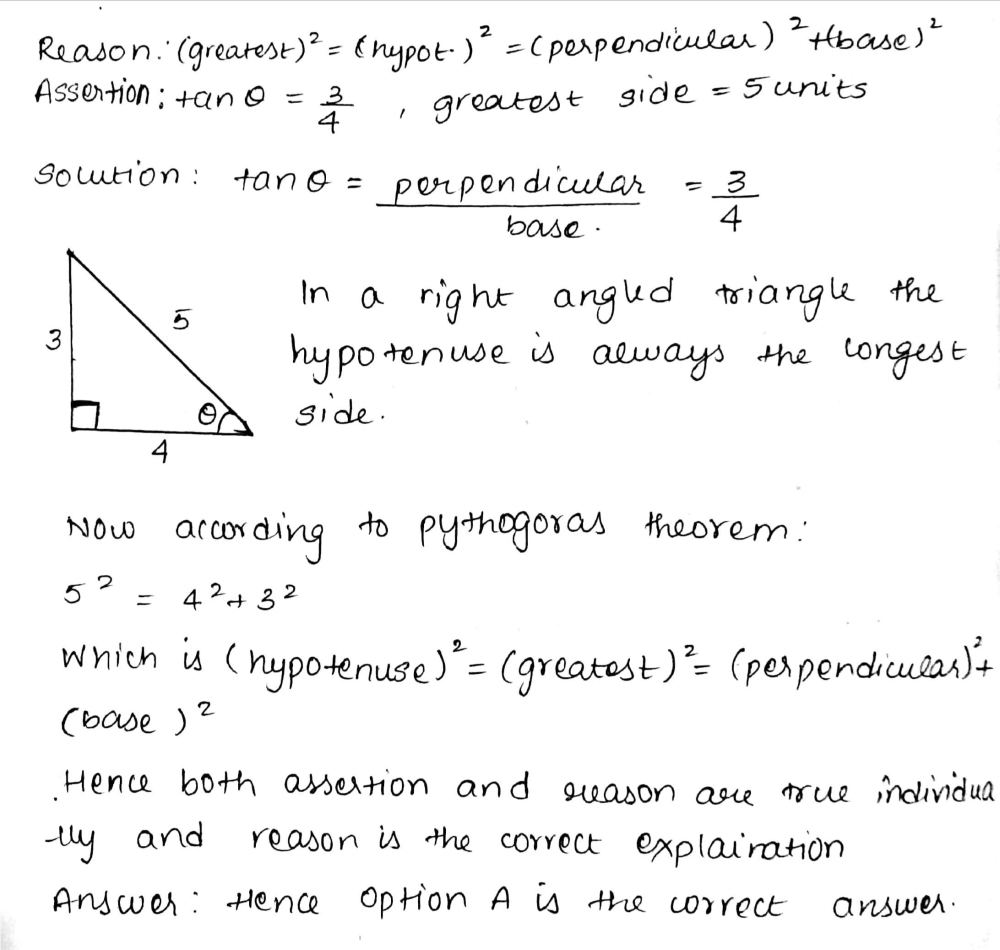 Reason: (greatest)² = (hypot.)² = (perpendicular)² + (base)²
Assertion: tan θ = 3/4 , greatest side = 5 units
Solution: tan θ = perpendicular/base. = 3/4
In a right angled triangle the
3
5
hypotenuse is always the longest
θ
side.
4
Now according to pythogoras theorem:
5² = 4² + 3²
Which is (hypotenuse)² = (greatest)² = (perpendicular)² +
(base)²
Hence both assertion and reason are true individua
-lly and reason is the correct explairation
Answer: Hence option A is the correct answer.